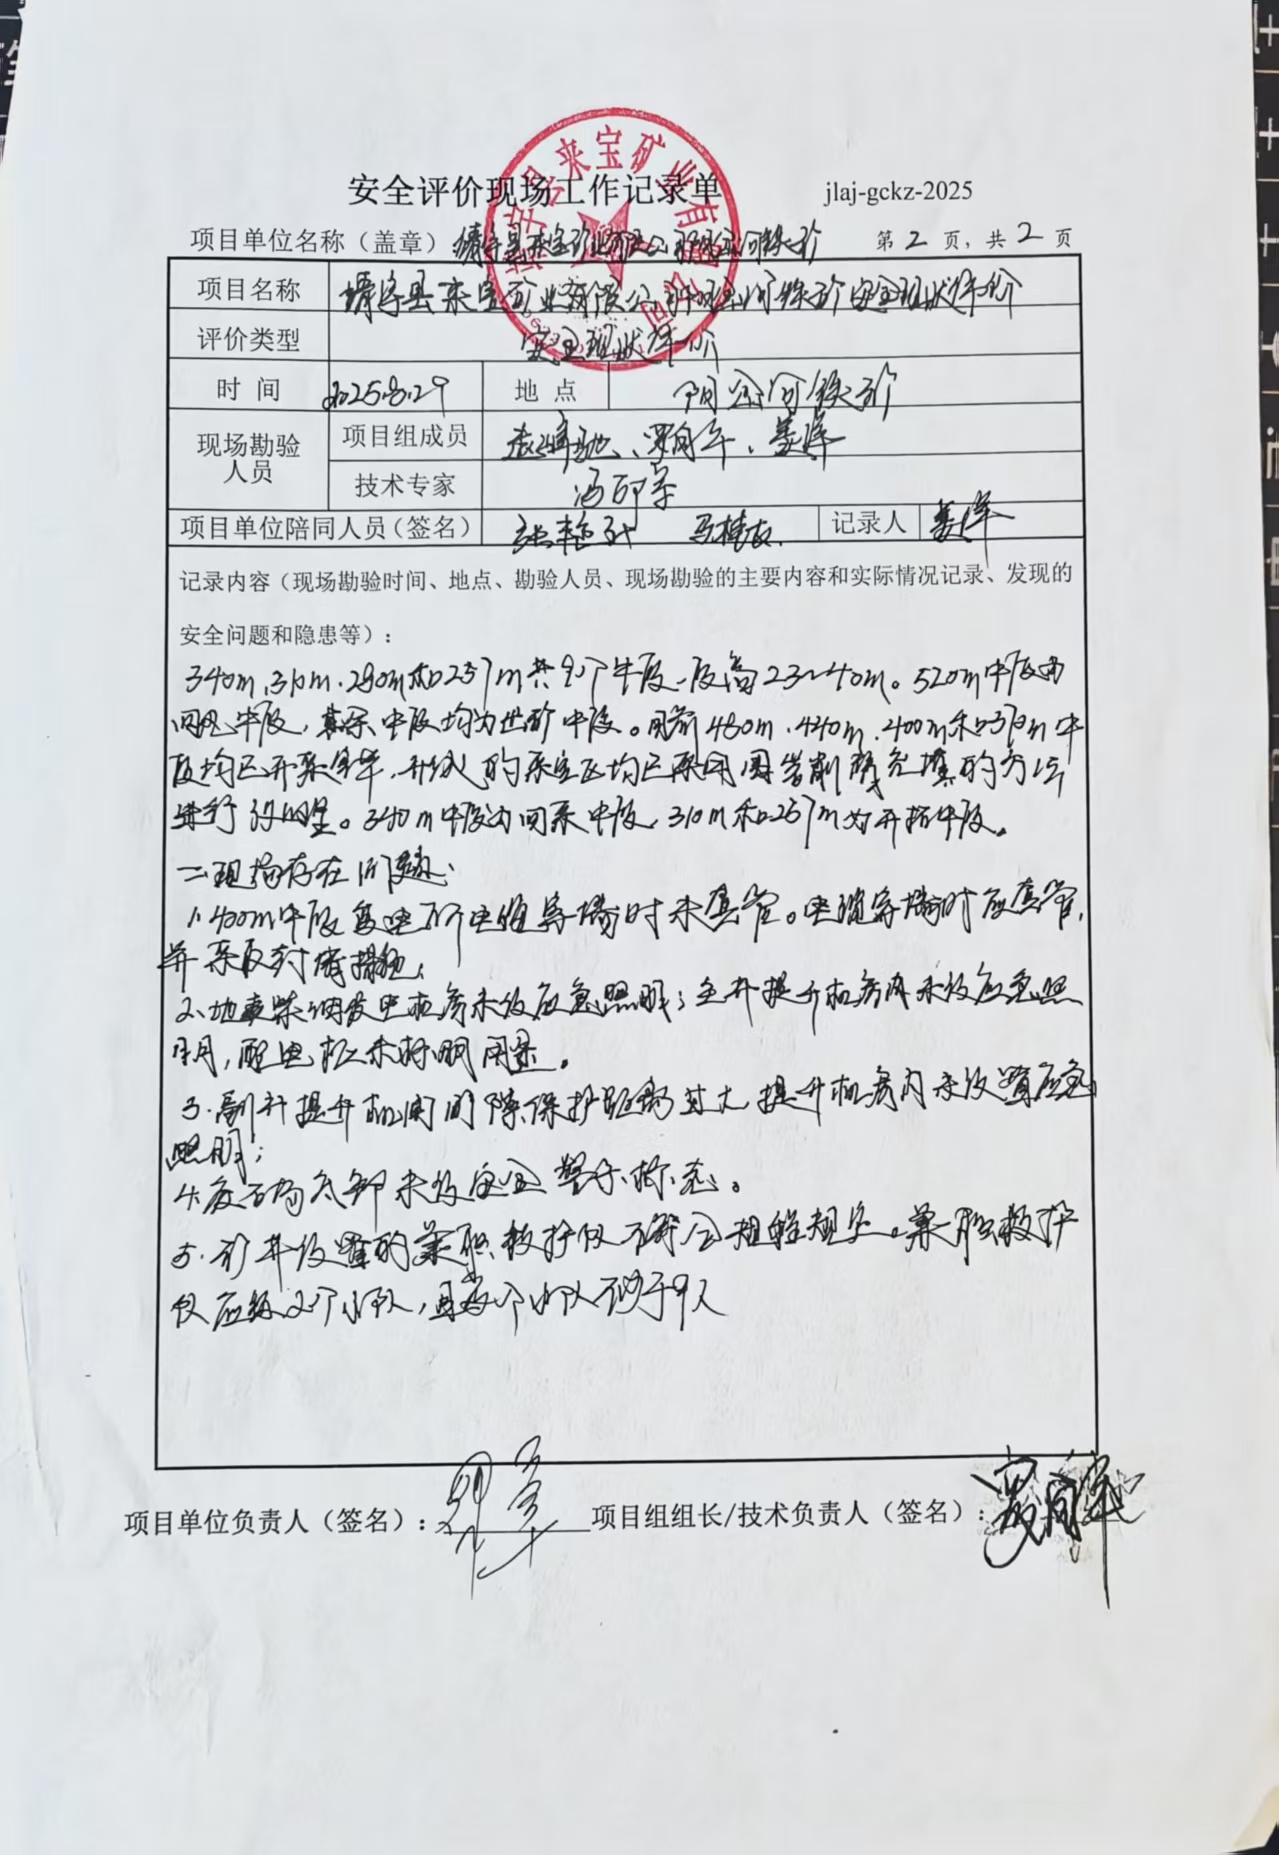 安全评价现场工作记录单 jlaj-gckz-2025
项目单位名称（盖章）靖宇县来宝矿业有限公司 铁矿 第 2 页，共 2 页
靖宇县来宝矿业有限公司
项目名称 靖宇县来宝矿业有限公司 铁矿安全现状评价
评价类型 安全现状评价
时 间 2025.8.29 地 点 铁矿
现场勘验人员 项目组成员 姜洋
技术专家 冯
项目单位陪同人员（签名） 马桂友 记录人 姜洋
记录内容（现场勘验时间、地点、勘验人员、现场勘验的主要内容和实际情况记录、发现的
安全问题和隐患等）：
340m、310m、290m和257m共9个中段，段高23~40m。520m中段为
回风中段，其余中段均为出矿中段。目前460m、420m、400m和370m中
段均已开采完毕，形成的采空区均已采用围岩削壁充填的方法
进行处理。340m中段为回采中段，310m和257m为开拓中段。
二、现场存在问题：
1、400m中段变电所电缆穿墙时未套管。电缆穿墙时应套管，
并采取封堵措施；
2、地表柴油发电机房未设应急照明；主井提升机房内未设应急照
明，配电柜未标明用途。
3、副井提升机闸间隙保护距离过大，提升机房内未设置应急
照明；
4、废石场 未设安全警示标志。
5、矿井设置的兼职救护队不符合规程规定。兼职救护
队应编2个小队，且每个小队不少于9人
项目单位负责人（签名）： 项目组组长/技术负责人（签名）：